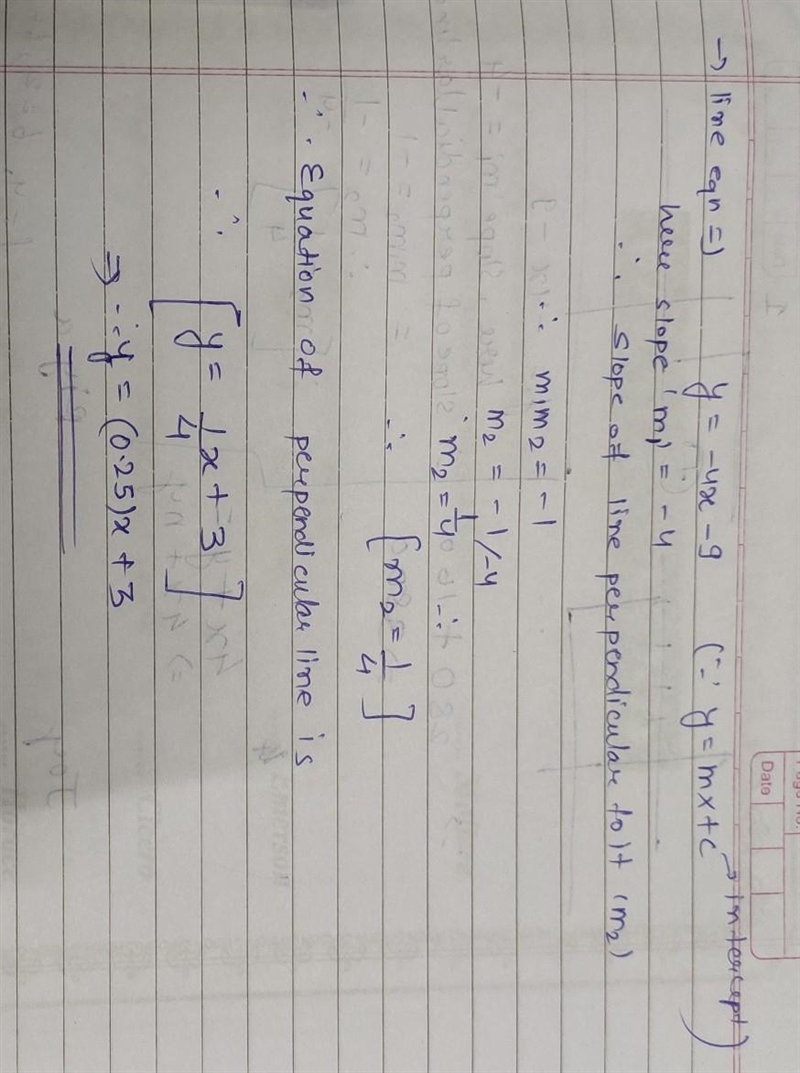 Page No.
Date
→ line eqn ⇒ y = -4x - 9 (∵ y = mx + c → intercept)
here slope 'm₁ = -4
∴ slope of line perpendicular to it (m₂)
∴ m₁m₂ = -1
m₂ = -1/-4
∴ m₂ = 1/4
∴ [m₂ = 1/4]
∴ Equation of perpendicular line is
∴ [y = 1/4 x + 3]
⇒ ∴ y = (0.25)x + 3